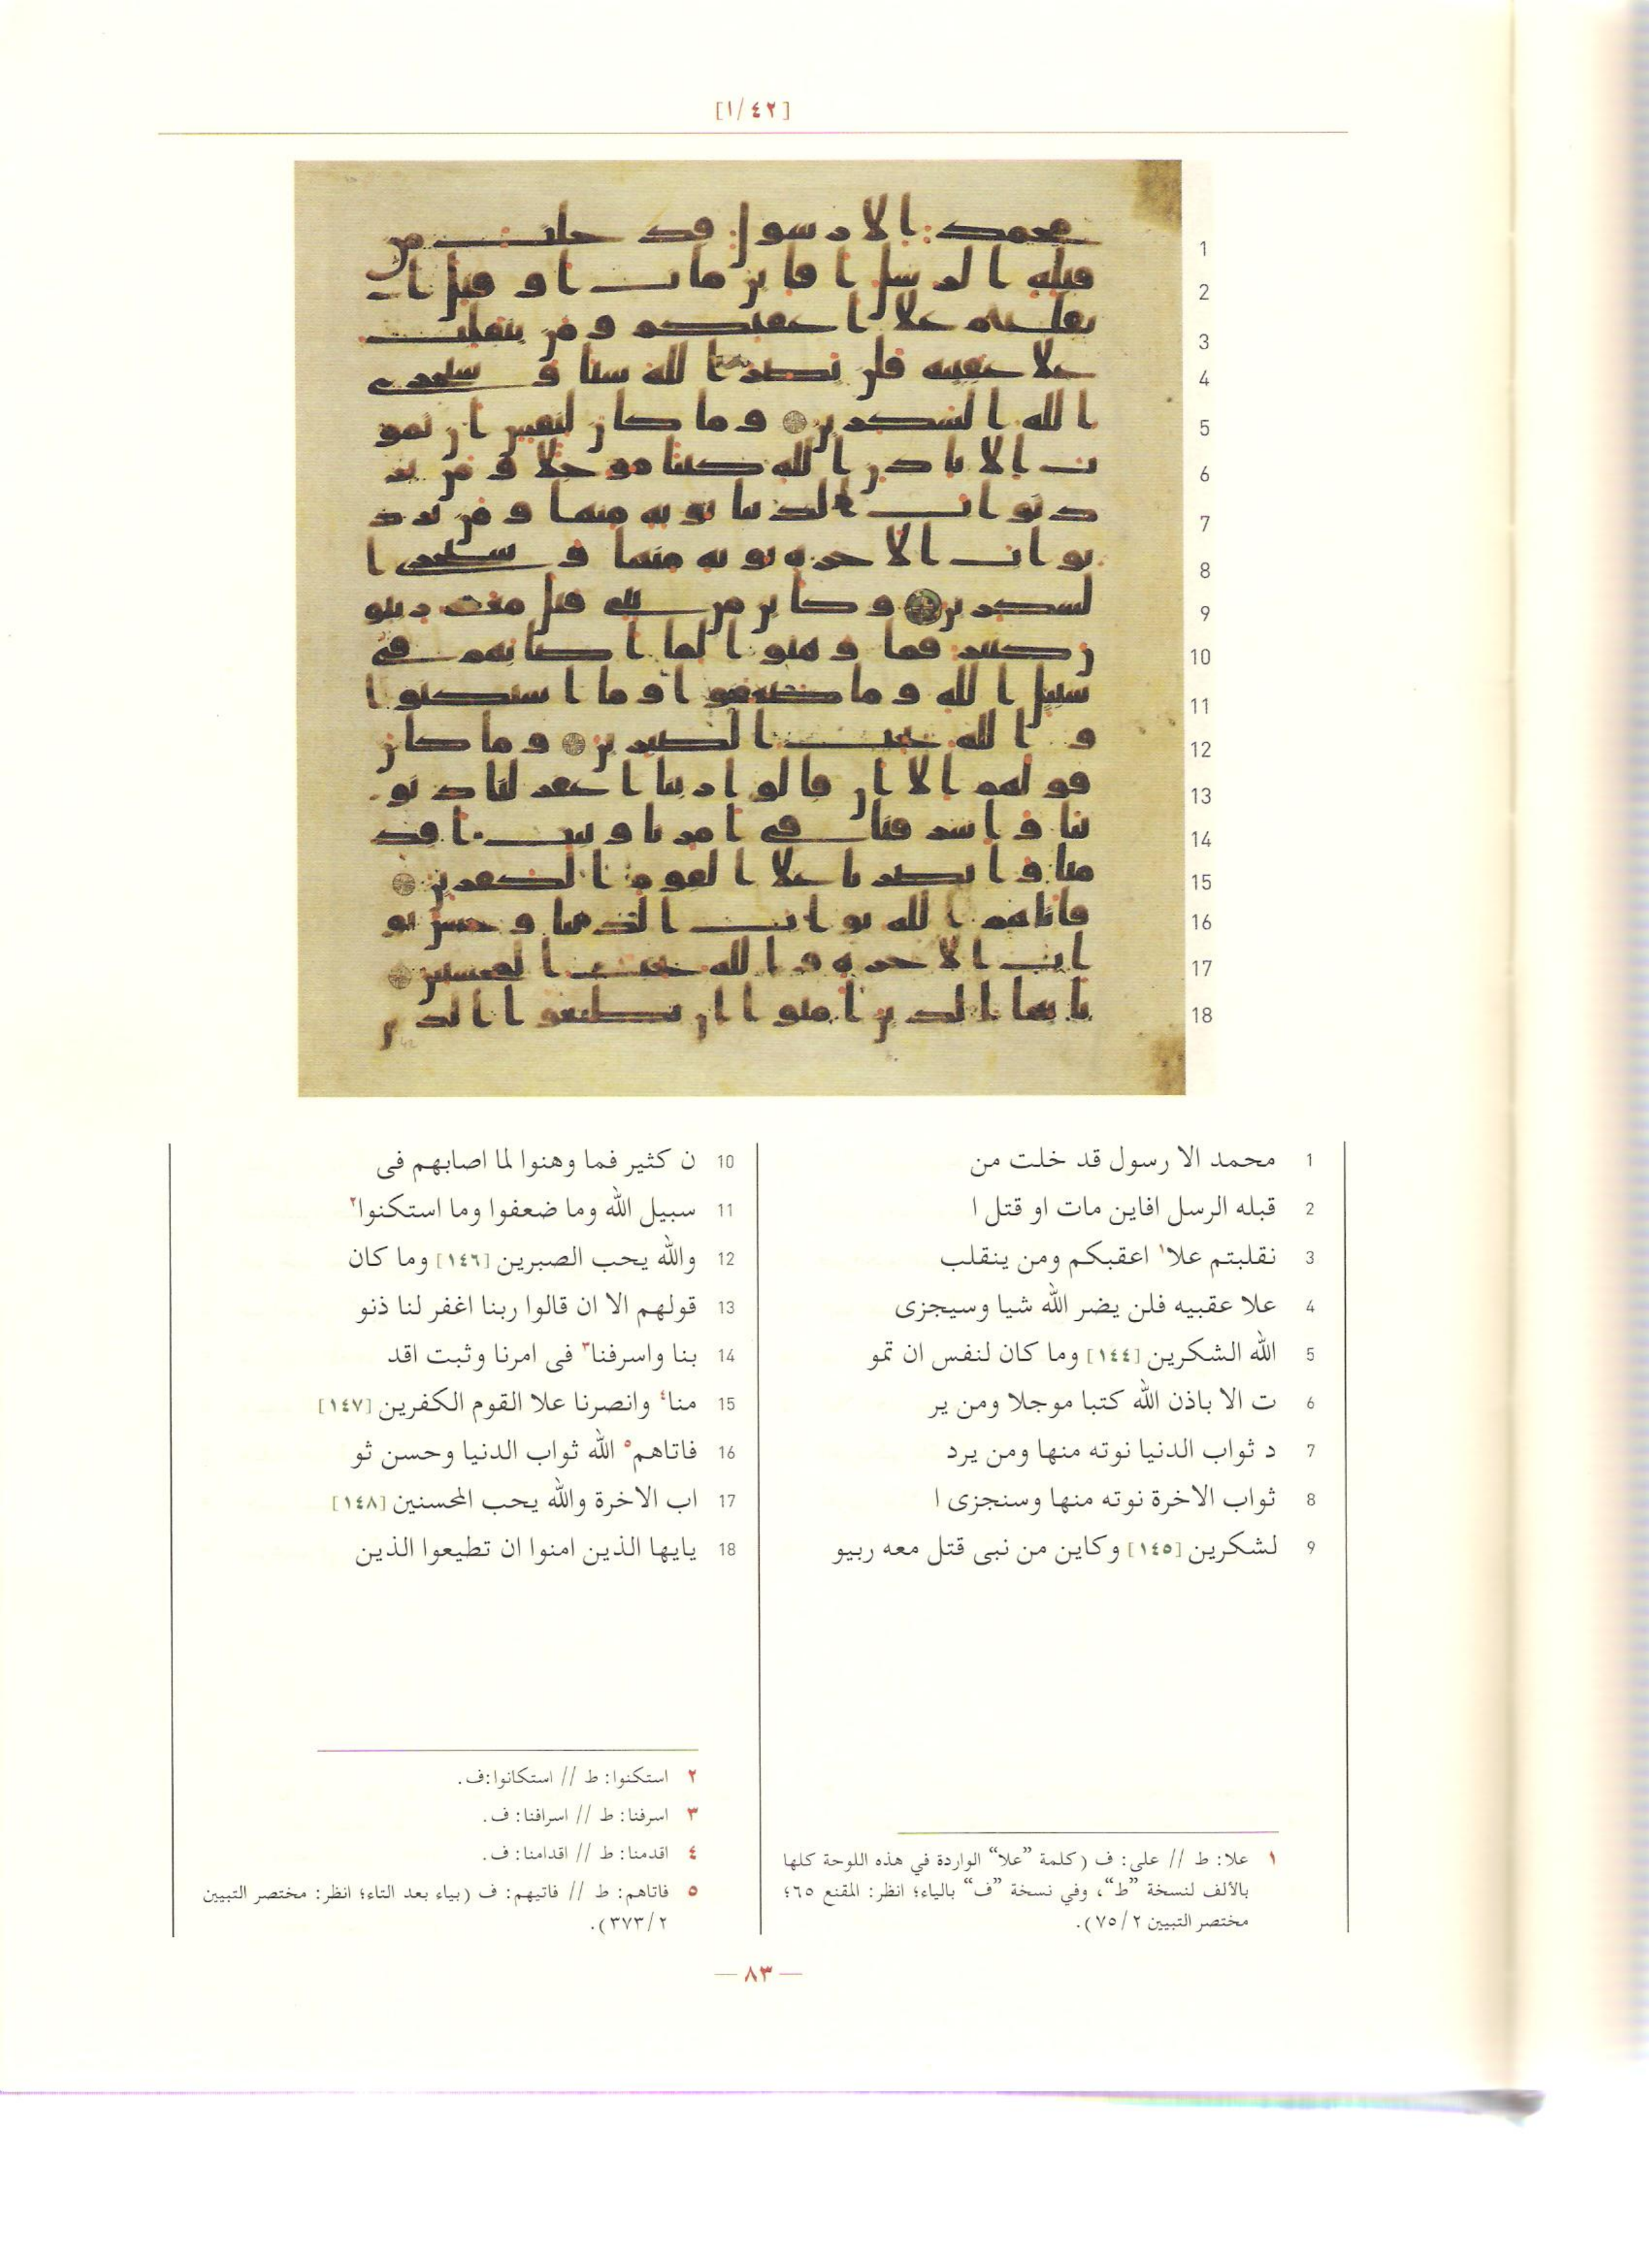 [١/٤٢]
1 محمد الا رسول قد خلت من
2 قبله الرسل افاين مات او قتل ا
3 نقلبتم علا١ اعقبكم ومن ينقلب
4 علا عقبيه فلن يضر الله شيا وسيجزى
5 الله الشكرين [١٤٤] وما كان لنفس ان تمو
6 ت الا باذن الله كتبا موجلا ومن ير
7 د ثواب الدنيا نوته منها ومن يرد
8 ثواب الاخرة نوته منها وسنجزى ا
9 لشكرين [١٤٥] وكاين من نبى قتل معه ربيو
10 ن كثير فما وهنوا لما اصابهم فى
11 سبيل الله وما ضعفوا وما استكنوا٢
12 والله يحب الصبرين [١٤٦] وما كان
13 قولهم الا ان قالوا ربنا اغفر لنا ذنو
14 بنا واسرفنا٣ فى امرنا وثبت اقد
15 منا٤ وانصرنا علا القوم الكفرين [١٤٧]
16 فاتاهم٥ الله ثواب الدنيا وحسن ثو
17 اب الاخرة والله يحب المحسنين [١٤٨]
18 يايها الذين امنوا ان تطيعوا الذين
١ علا: ط // على: ف (كلمة ”علا“ الواردة في هذه اللوحة كلها
بالألف لنسخة ”ط“، وفي نسخة ”ف“ بالياء؛ انظر: المقنع ٦٥؛
مختصر التبيين ٧٥/٢).
٢ استكنوا: ط // استكانوا:ف.
٣ اسرفنا: ط // اسرافنا: ف.
٤ اقدمنا: ط // اقدامنا: ف.
٥ فاتاهم: ط // فاتيهم: ف (بياء بعد التاء؛ انظر: مختصر التبيين
٣٧٣/٢).
— ٨٣ —